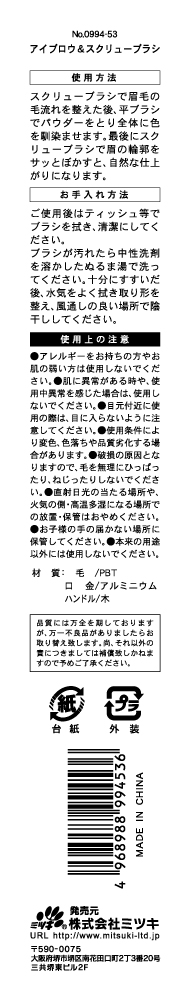 No.0994-53
アイブロウ＆スクリューブラシ
使用方法
スクリューブラシで眉毛の
毛流れを整えた後、平ブラシ
でパウダーをとり全体に色
を馴染ませます。最後にスク
リューブラシで眉の輪郭を
サッとぼかすと、自然な仕上
がりになります。
お手入れ方法
ご使用後はティッシュ等で
ブラシを拭き、清潔にしてく
ださい。
ブラシが汚れたら中性洗剤
を溶かしたぬるま湯で洗っ
てください。十分にすすいだ
後、水気をよく拭き取り形を
整え、風通しの良い場所で陰
干ししてください。
使用上の注意
●アレルギーをお持ちの方やお
肌の弱い方は使用しないでくだ
さい。●肌に異常がある時や、使
用中異常を感じた場合は、使用し
ないでください。●目元付近に使
用の際は、目に入らないように注
意してください。●使用条件によ
り変色、色落ちや品質劣化する場
合があります。●破損の原因とな
りますので、毛を無理にひっぱっ
たり、ねじったりしないでくださ
い。●直射日光の当たる場所や、
火気の側・高温多湿になる場所で
の放置・保管はおやめください。
●お子様の手の届かない場所に
保管してください。●本来の用途
以外には使用しないでください。
材 質： 毛 /PBT
口 金/アルミニウム
ハンドル/木
品質には万全を期しております
が、万一不良品がありましたらお
取り替え致します。尚、それ以外の
責につきましては補償致しかねま
すので予めご了承ください。
紙
プラ
台紙
外装
4 968988 994536
MADE IN CHINA
発売元
ミツキ 株式会社ミツキ
URL http://www.mitsuki-ltd.jp
〒590-0075
大阪府堺市堺区南花田口町2丁3番20号
三共堺東ビル2F